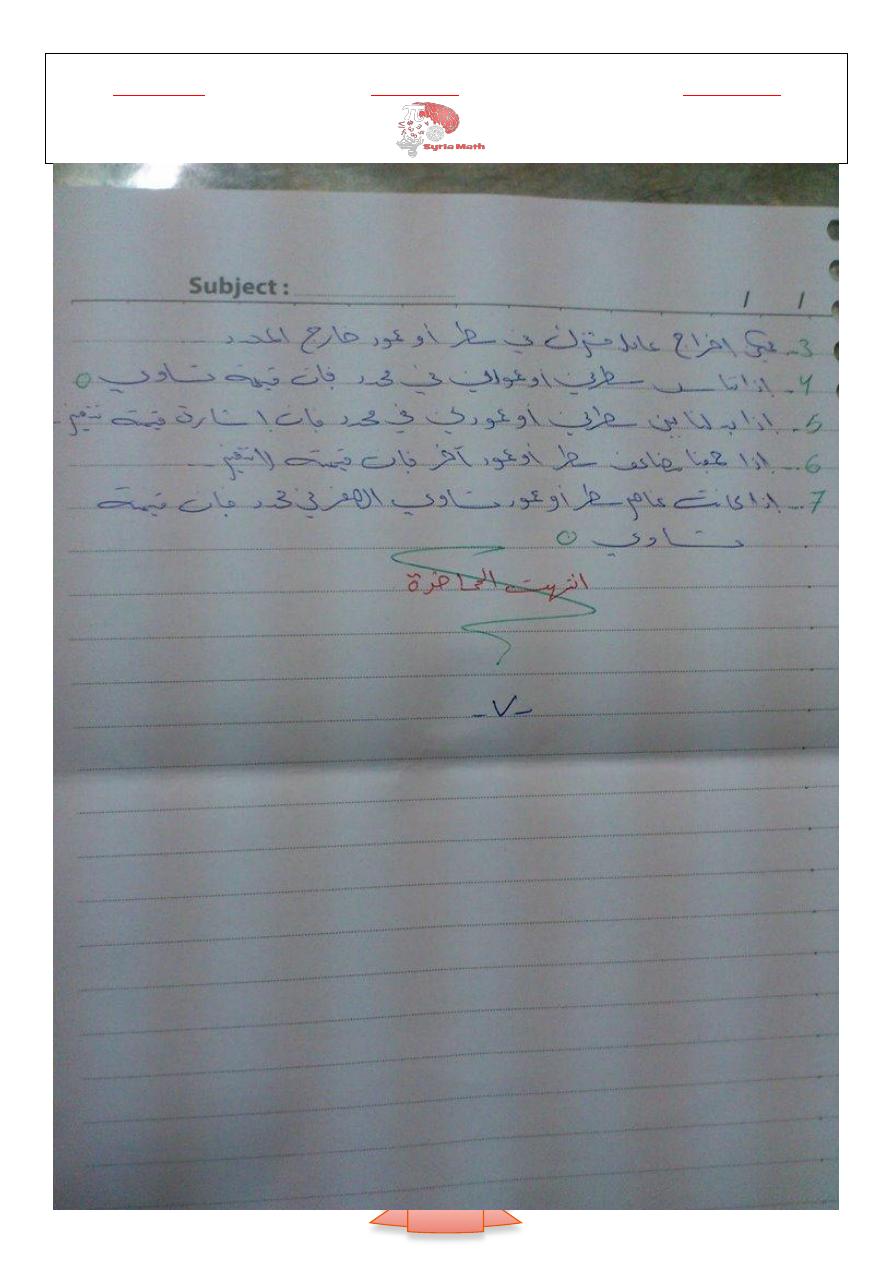 Syria Math
Subject :
/ /
3- يمكن اخراج عامل مشترك في سطر أو عمود خارج المحدد
4- إذا تناسب سطرين أو عمودين في محدد فإن قيمته تساوي 0
5- إذا بدلنا بين سطرين أو عمودين في محدد فإن اشارة قيمته تتغير
6- إذا جمعنا مضاعف سطر أو عمود لآخر فإن قيمته لا تتغير
7- إذا كانت عناصر سطر أو عمود تساوي الصفر في محدد فإن قيمته
تساوي 0
انتهت المحاضرة
-٧-